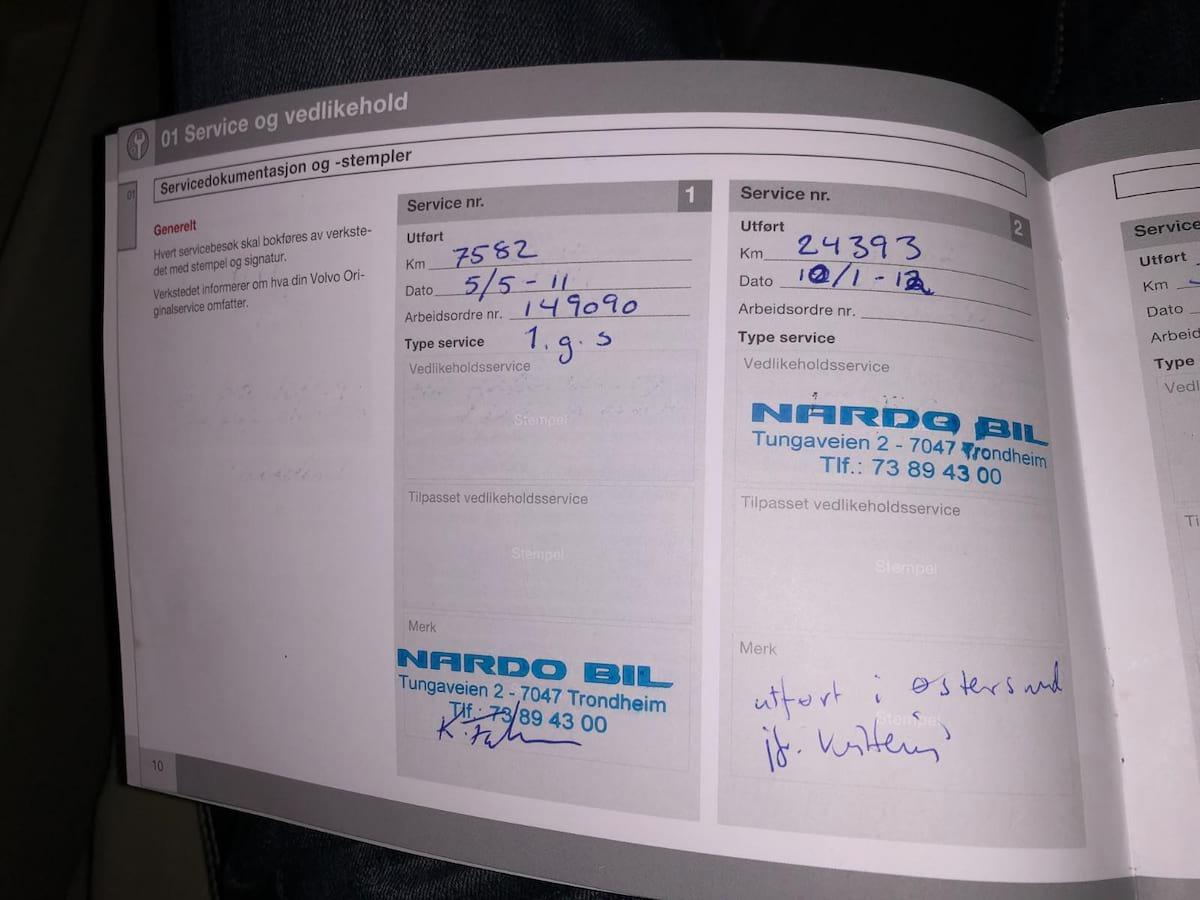 01 Service og vedlikehold
01
Servicedokumentasjon og -stempler
Generelt
Hvert servicebesøk skal bokføres av verkste-
det med stempel og signatur.
Verkstedet informerer om hva din Volvo Ori-
ginalservice omfatter.
10
Service nr. 1
Utført
Km 7582
Dato 5/5 - 11
Arbeidsordre nr. 149090
Type service 1. g. s
Vedlikeholdsservice
Stempel
Tilpasset vedlikeholdsservice
Stempel
Merk
NARDO BIL
Tungaveien 2 - 7047 Trondheim
Tlf.: 73 89 43 00
Service nr. 2
Utført
Km 24393
Dato 10/1 - 12
Arbeidsordre nr.
Type service
Vedlikeholdsservice
NARDO BIL
Tungaveien 2 - 7047 Trondheim
Tlf.: 73 89 43 00
Tilpasset vedlikeholdsservice
Stempel
Merk
utført i østersund
Stempel
jf.
Service
Utført
Km
Dato
Arbeid
Type
Vedl
Ti